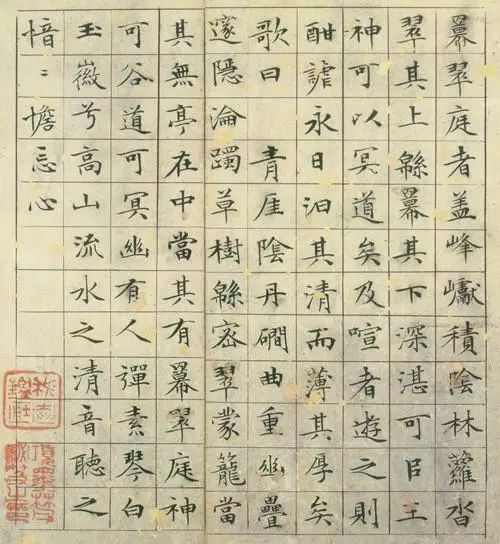 冪翠庭者蓋峰巘積陰林蘿沓
翠其上緜冪其下深湛可㠯王
神可以冥道矣及喧者遊之則
酣謔永日汩其清而薄其厚矣
歌曰　青厓陰丹磵曲重幽疊
邃隱淪躅草樹緜密翠蒙籠當
其無亭在中當其有冪翠庭神
可谷道可冥幽有人彈素琴白
玉徽兮高山流水之清音聽之
愔〻憺忘心